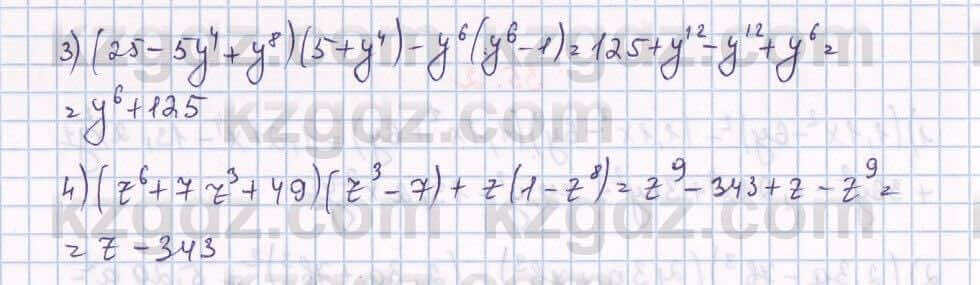 3) (25 - 5y⁴ + y⁸)(5 + y⁴) - y⁶(y⁶ - 1) = 125 + y¹² - y¹² + y⁶ =
= y⁶ + 125
4) (z⁶ + 7z³ + 49)(z³ - 7) + z(1 - z⁸) = z⁹ - 343 + z - z⁹ =
= z - 343
kzgdz.com